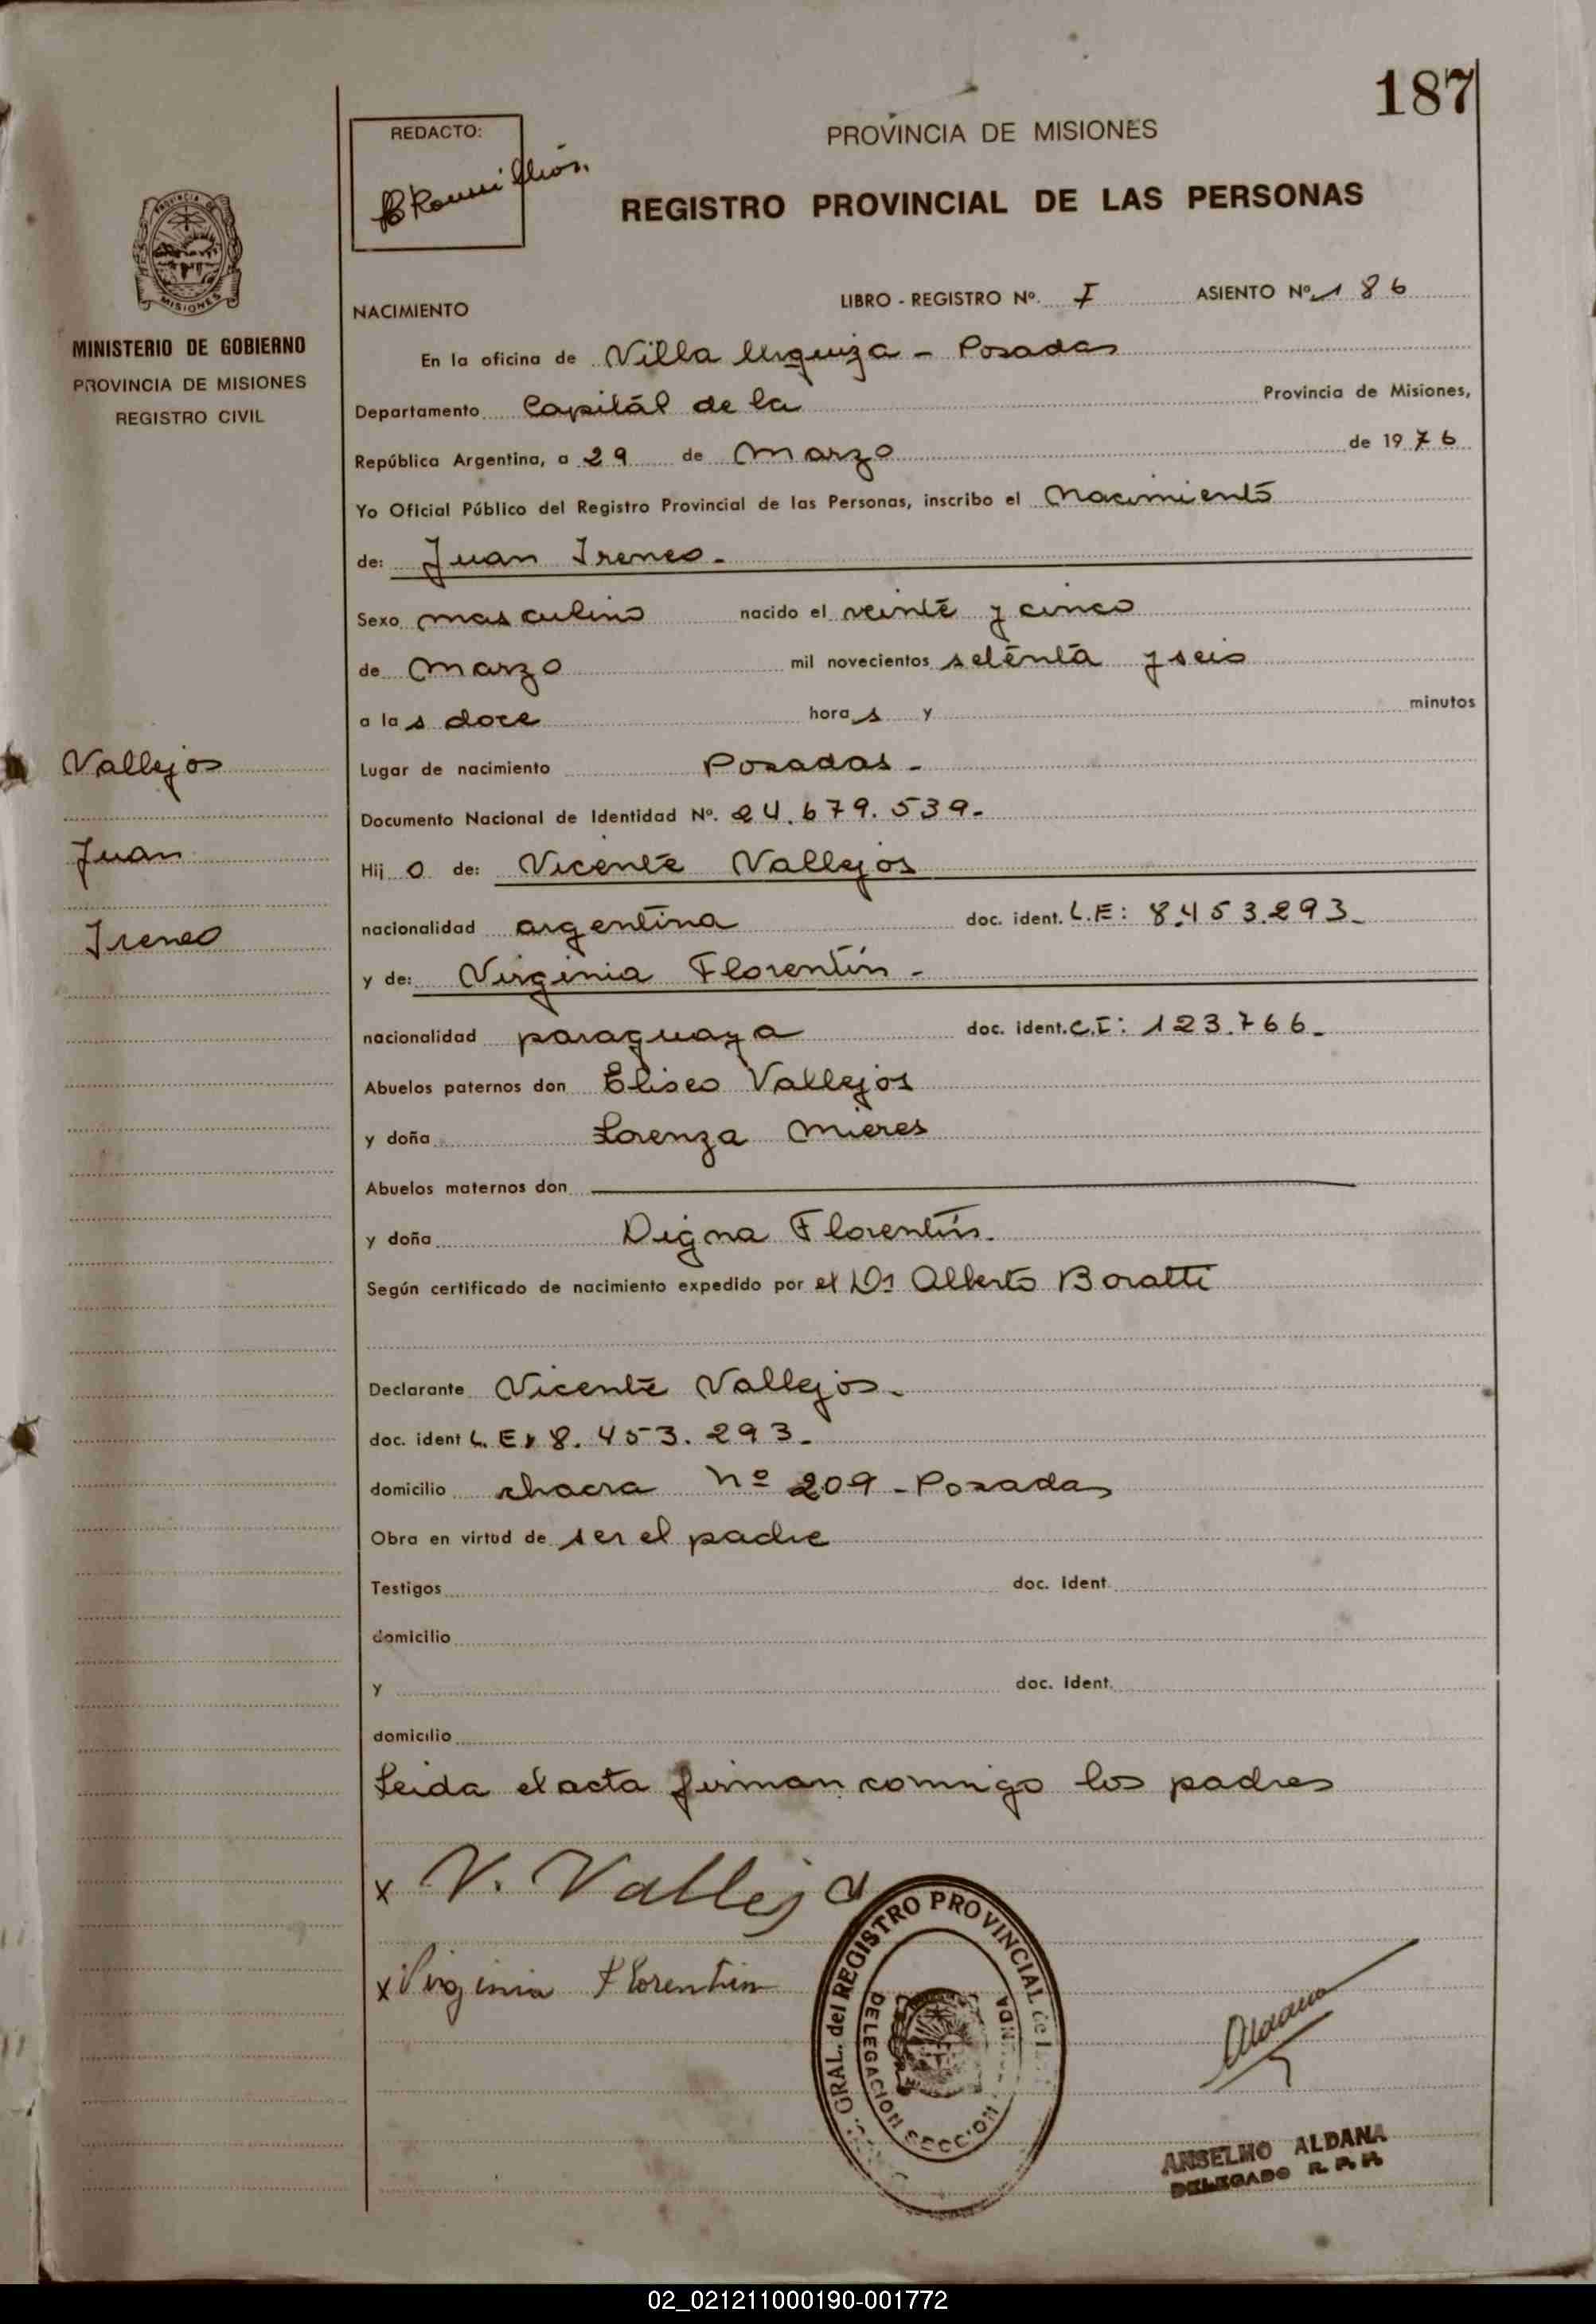 187
REDACTO:
PROVINCIA DE MISIONES
REGISTRO PROVINCIAL DE LAS PERSONAS
MISIONES
MINISTERIO DE GOBIERNO
PROVINCIA DE MISIONES
REGISTRO CIVIL
NACIMIENTO LIBRO - REGISTRO Nº. I ASIENTO Nº 186
En la oficina de Villa Urquiza - Posadas
Departamento Capitál de la Provincia de Misiones,
República Argentina, a 29 de Marzo de 1976
Yo Oficial Público del Registro Provincial de las Personas, inscribo el Nacimiento
de: Juan Ireneo.
Sexo masculino nacido el veinte y cinco
de Marzo mil novecientos setenta y seis
a las doce horas y minutos
Lugar de nacimiento Posadas -
Documento Nacional de Identidad Nº. 24.679.539-
Hijo de: Vicente Vallejos
nacionalidad argentina doc. ident. L.E: 8.453.293-
y de: Virginia Florentin -
nacionalidad paraguaya doc. ident. C.I: 123.766-
Abuelos paternos don Eliseo Vallejos
y doña Lorenza Mieres
Abuelos maternos don
y doña Digna Florentin.
Según certificado de nacimiento expedido por el Dr Alberto Boratti
Declarante Vicente Vallejos-
doc. ident L.E: 8.453.293-
domicilio chacra Nº 209 - Posadas
Obra en virtud de ser el padre
Testigos doc. ident.
domicilio
y doc. ident.
domicilio
Leida el acta firman comnigo los padres
x V. Vallejo
x Virginia Florentin
Vallejos
Juan
Ireneo
GRAL. del REGISTRO PROVINCIAL de l
DELEGACION SECCION
Aldana
ANSELMO ALDANA
DELEGADO R. P. P.
02_021211000190-001772